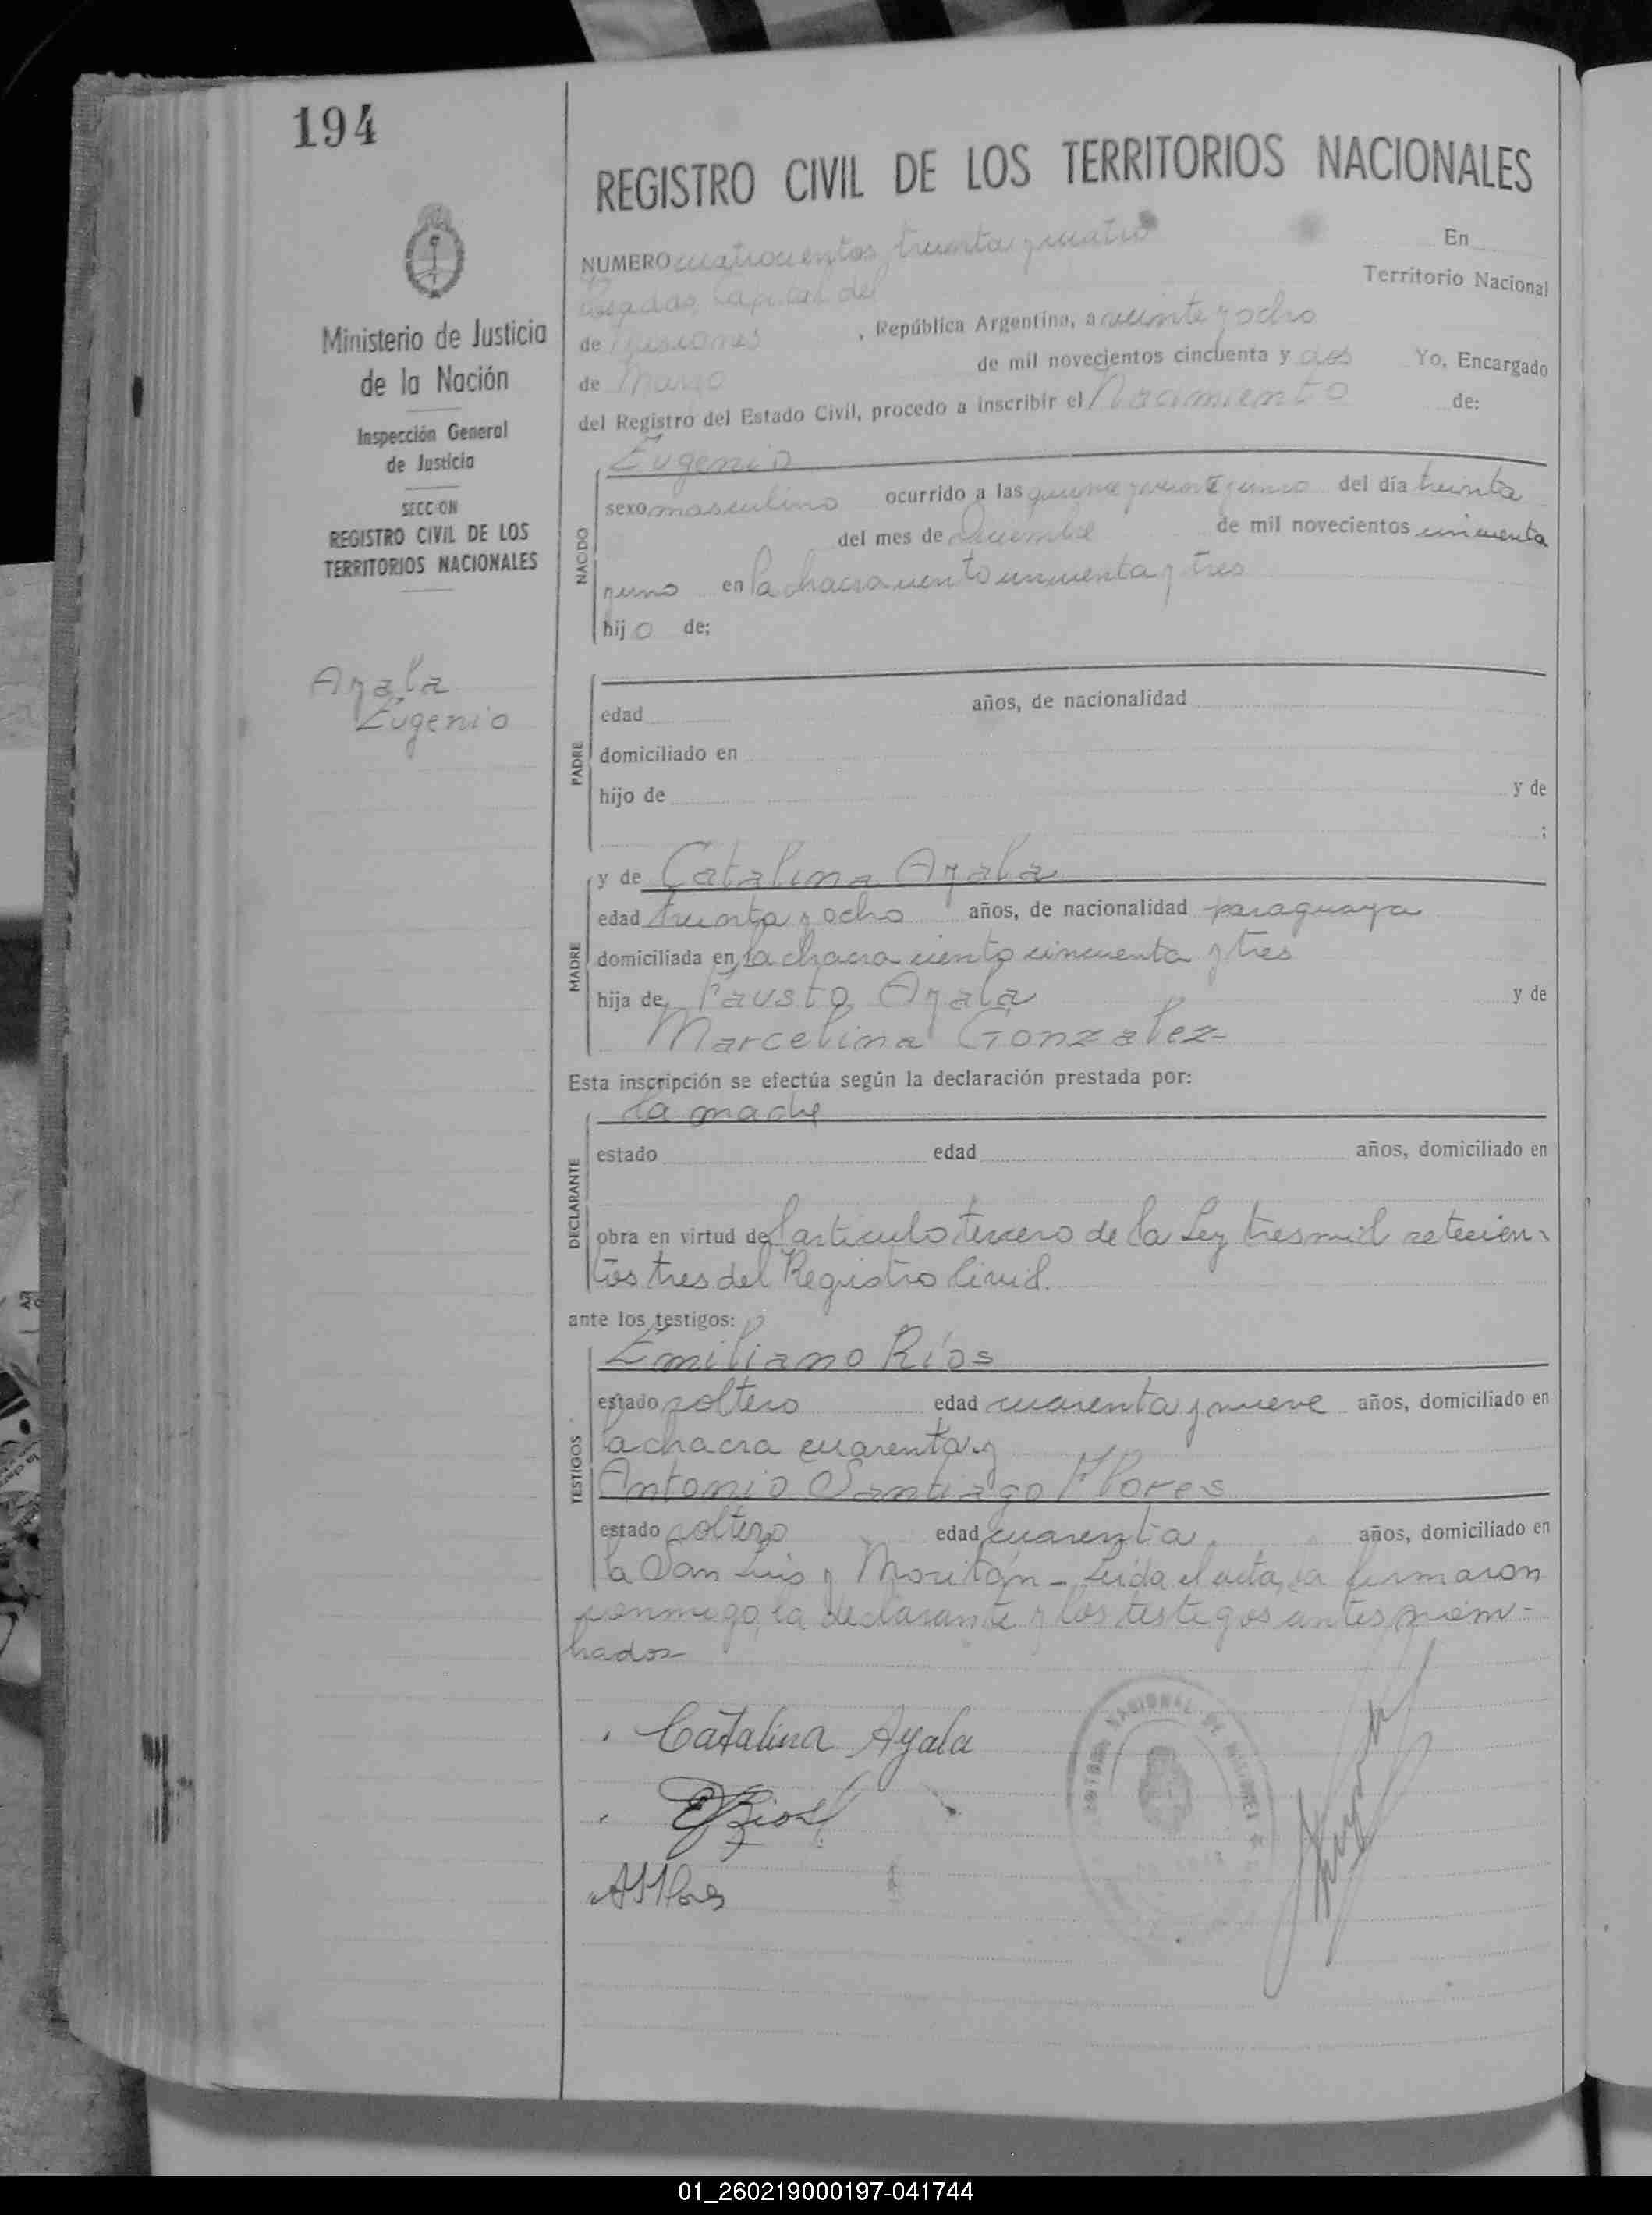 194
REGISTRO CIVIL DE LOS TERRITORIOS NACIONALES
Ministerio de Justicia
de la Nación
Inspección General
de Justicia
SECCION
REGISTRO CIVIL DE LOS
TERRITORIOS NACIONALES
Ayala
Eugenio
NUMERO cuatrocientos treinta y cuatro En
Posadas, Capital del Territorio Nacional
de Misiones, República Argentina, a veinte y ocho
de Marzo de mil novecientos cincuenta y dos Yo, Encargado
del Registro del Estado Civil, procedo a inscribir el Nacimiento de:
NACIDO
Eugenio
sexo masculino ocurrido a las quince y del día treinta
del mes de Diciembre de mil novecientos cincuenta
y uno en la chacra ciento cincuenta y tres
hijo de;
PADRE
edad años, de nacionalidad
domiciliado en
hijo de y de
;
MADRE
y de Catalina Ayala
edad treinta y ocho años, de nacionalidad paraguaya
domiciliada en la chacra ciento cincuenta y tres
hija de Fausto Ayala y de
Marcelina Gonzalez
Esta inscripción se efectúa según la declaración prestada por:
DECLARANTE
la madre
estado edad años, domiciliado en
obra en virtud del artículo tercero de la Ley tresmil setecien-
tos tres del Registro Civil.
ante los testigos:
TESTIGOS
Emiliano Ríos
estado soltero edad cuarenta y nueve años, domiciliado en
la chacra cuarenta y
Antonio Santiago Flores
estado soltero edad cuarenta años, domiciliado en
la San Luis y Moritán - Leída el acta, la firmaron
conmigo, la declarante y los testigos antes nom-
brados-
Catalina Ayala
E Rios
ASFlores
NACIONAL DE MISIONES
01_260219000197-041744